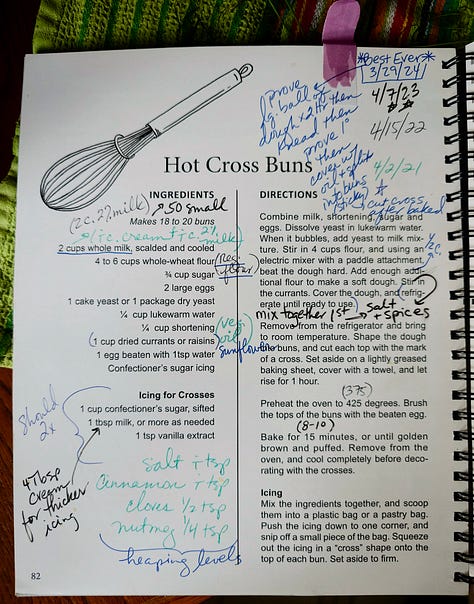 *Best Ever*
3/29/24
4/7/23
4/15/22
4/2/21
prove
lg. ball of
dough x 2 Hr then
knead then
prove 1°
then
cover w/
out + split
into buns
sticky
cut cross
baked
Hot Cross Buns
INGREDIENTS
(2 c. 2% milk) 50 small
Makes 18 to 20 buns
1 c. cream + 1 c. 2% milk
2 cups whole milk, scalded and cooled
4 to 6 cups whole-wheat flour (Reg. flour)
¾ cup sugar
2 large eggs
1 cake yeast or 1 package dry yeast
¼ cup lukewarm water
¼ cup shortening (veg. oil
sunflower
(1 cup dried currants or raisins)
1 egg beaten with 1tsp water
Confectioner's sugar icing
Icing for Crosses
Should
2x
1 cup confectioner's sugar, sifted
1 tbsp milk, or more as needed
1 tsp vanilla extract
4 tbsp
cream
for thicker
icing
salt 1 tsp
Cinnamon 1 tsp
cloves 1/2 tsp
nutmeg 1/4 tsp
heaping levels
82
DIRECTIONS
Combine milk, shortening, sugar and
eggs. Dissolve yeast in lukewarm water.
When it bubbles, add yeast to milk mix-
ture. Stir in 4 cups flour, and using an
electric mixer with a paddle attachment,
beat the dough hard. Add enough addi-
tional flour to make a soft dough. Stir in
the currants. Cover the dough, and refrig-
erate until ready to use.
mix together 1st salt
+ spices
Remove from the refrigerator and bring
to room temperature. Shape the dough
into buns, and cut each top with the mark
of a cross. Set aside on a lightly greased
baking sheet, cover with a towel, and let
rise for 1 hour.
(375)
Preheat the oven to 425 degrees. Brush
the tops of the buns with the beaten egg.
(8-10)
Bake for 15 minutes, or until golden
brown and puffed. Remove from the
oven, and cool completely before deco-
rating with the crosses.
Icing
Mix the ingredients together, and scoop
them into a plastic bag or a pastry bag.
Push the icing down to one corner, and
snip off a small piece of the bag. Squeeze
out the icing in a "cross" shape onto the
top of each bun. Set aside to firm.